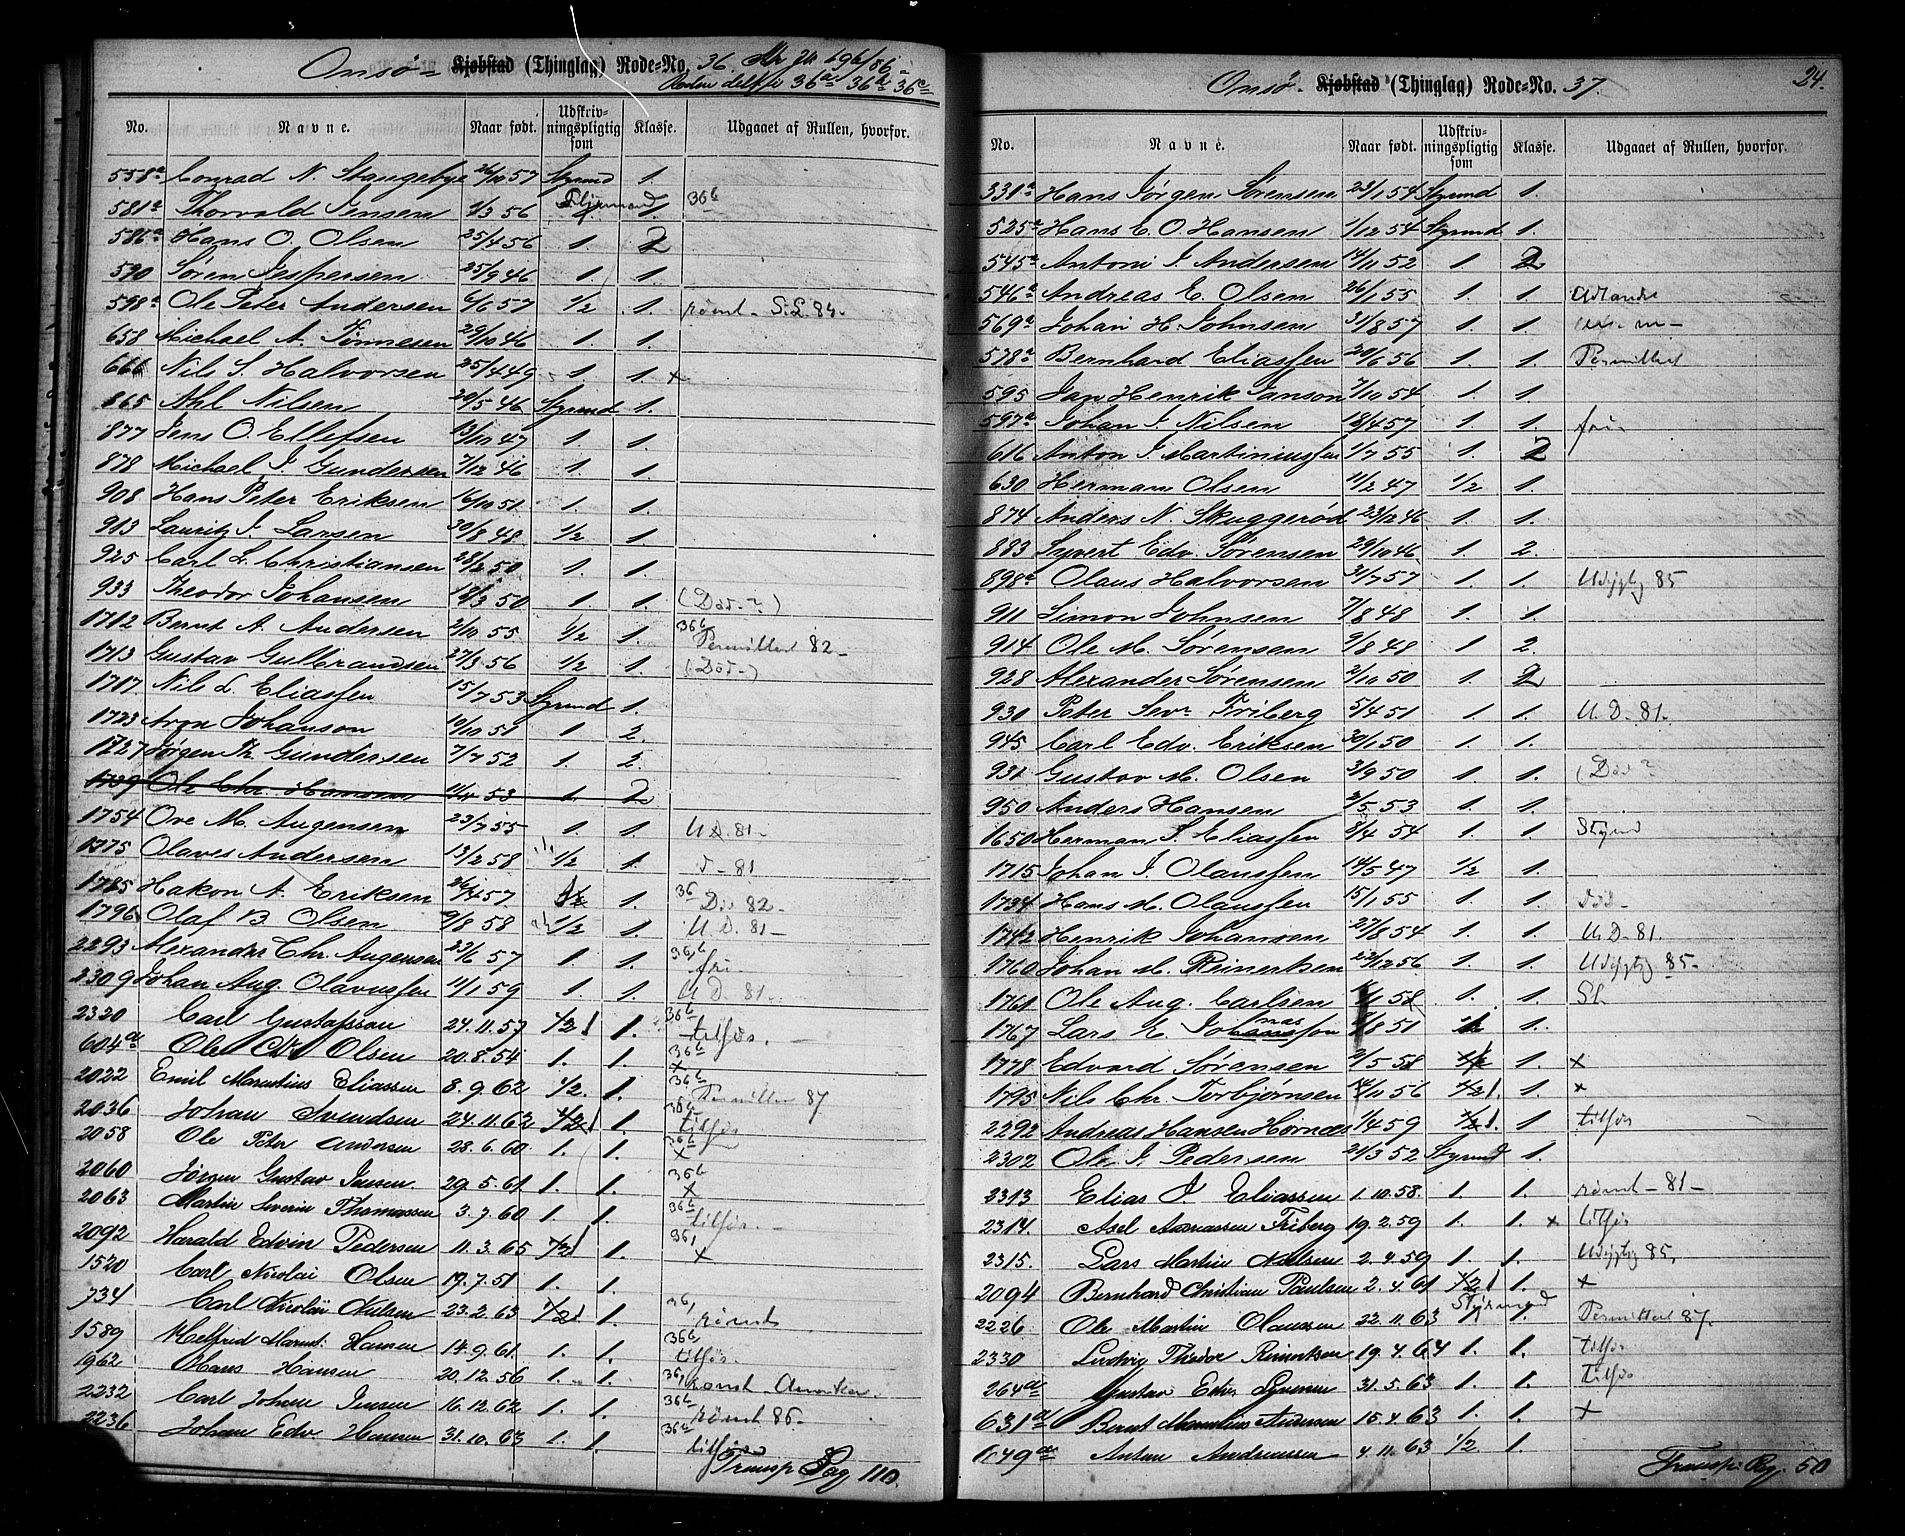 Onsø - Kjøbstad (Thinglag) Rode=No. 36
36a 36b 36c
No. Navne. Naar født. Udskriv-ningspligtig som Klasse. Udgaaet af Rullen, hvorfor.
558a Conrad N. Stangebye 26/10 57 Styrmd 1.
581a Thorvald Jensen 1/3 56 1. 36b
586a Hans O. Olsen 25/4 56 1. 2
590 Søren Jespersen 25/9 46 1. 1.
598a Ole Peter Andersen 6/6 57 1/2 1. rømt - S.L. 84.
658 Michael A. Tønnesen 29/10 46 1. 1.
666 Nils S. Halvorsen 25/4 49 1 1. x
865 Ahl Nilsen 20/5 46 Styrmd 1.
877 Jens O. Ellefsen 13/10 47 1. 1.
878 Michael J. Gundersen 7/12 46 1. 1.
908 Hans Peter Eriksen 16/10 51 1. 1.
913 Lauritz J. Larsen 30/8 48 1/2 1.
925 Carl L. Christiansen 28/2 50 1. 1.
933 Theodor Johansen 18/3 50 1. 1. (Død - ?)
1712 Bernt A. Andersen 2/10 55 1/2 1. 36b Permitteret 82 -
1713 Gustav Gulbrandsen 27/3 56 1/2 1. (Død -)
1717 Nils L. Eliassen 15/7 53 Styrmd 1.
1723 Aron Johanson 10/10 51 1 2.
1727 Jørgen Th. Gundersen 7/7 52 1 2.
1739 Ole Chr. Hansen 11/11 53 1. 2
1754 Ove M. Augensen 23/7 55 1. 1. U.D. 81 -
1775 Olaves Andersen 13/2 58 1/2 1. D - 81
1785 Hakon A. Eriksen 26/4 57 1/2 1. 36 Død 82 -
1796 Olaf B Olsen 9/8 58 1/2 1. U.D. 81 -
2293 Alexander Chr. Augensen 23/6 57 1 1. 36b fri.
2309 Johan Aug. Olavussen 11/1 59 1. 1. U.D. 81.
2320 Carl Gustafssøn 24.11.57 1/2 1 1. 36b tilfør.
604a Ole Chr Olsen 20.8.54 1. 1. 36b x
2022 Emil Marntius Eliassen 8.9.62 1/2. 1. 36b Permitteret 87
2036 Johan Svendsen 24.11.62 1/2 1 1. 36b tilfør
2058 Ole Peter Andersen 28.6.60 1. 1. 36b x
2060 Jørgen Gustav Jensen 29.5.61 1. 1. 36b x
2063 Martin Severin Thomassen 3.7.60 1. 1. 36b tilfør. -
2092 Harald Edvin Pedersen 11.3.65 1/2 1 1. 36, x
1520 Carl Nicolai Olsen 19.7.51 1. 1.
734 Carl Nicolai Nielsen 23.2.63 1/2 1 1. 36, rømt
1589 Helfred Marnt. Hansen 14.9.61 1. 1. 36b tilfør.
1962 Hans Hansen 20.12.56 1. 1. 36, rømt - Amerika.
2232 Carl Johan Jensen 16.12.62 1. 1. 36b rømt 86.
2236 Johan Edv Hansen 31.10.63 1. 1. 36a tilfør
Transp Pag. 110.
24.
Onsø. Kjøbstad (Thinglag) Rode=No. 37.
No. Navne. Naar født. Udskriv-ningspligtig som Klasse. Udgaaet af Rullen, hvorfor.
331a Hans Jørgen Sørensen 23/1 54 Styrmd 1.
525a Hans E. O. Hansen 1/12 54 Styrmd 1.
545a Antoni J. Andersen 14/11 52 1. 2
546a Andreas E. Olsen 26/1 55 1. 1.
569a Johan H. Johnsen 31/8 57 1. 1.
578a Bernhard Eliassen 20/6 56 1. 1. Permitteret
595 Jan Henrik Janson 7/10 54 1. 1
597a Johan J. Nilsen 18/4 57 1. 1. fri
616 Anton J. Martiniussen 1/7 55 1. 2
630 Herman Olsen 11/2 47 1/2 1.
874 Anders N. Skuggerød 23/12 46 1. 1.
883 Syvert Edv. Sørensen 29/10 46 1 2.
898a Olaus Halvorsen 31/7 57 1. 1. Udygtig 85
911 Simon Johnsen 7/8 48 1. 1.
914 Ole M. Sørensen 9/8 48 1 2.
928 Alexander Sørensen 2/10 50 1. 2
930 Peter Sevr Friberg 5/4 51 1 1. U.D. 81.
945 Carl Edv. Eriksen 30/1 50 1. 1.
931 Gustav M. Olsen 3/9 50 1. 1. (Død ?
950 Anders Hansen 2/5 53 1. 1.
1650 Herman S. Eliassen 8/4 54 1. 1. Styrmd
1715 Johan J. Olaussen 14/5 47 1/2 1.
1734 Hans M. Olaussen 15/1 55 1. 1. Død -
1742 Henrik Johansen 27/8 54 1. 1. U.D. 81.
1760 Johan M. Reinertsen 22/12 56 1. 1. Udygtig 85 -
1761 Ole Aug. Carlsen 1. 1.
1767 Lars E. Johannssøn 8 51 1.
1778 Edvard Sørensen 2/5 58 1. x
1795 Nils Chr. Torbjørnsen 14/11 56 1/2 1. 1. x
2292 Andreas Hansen Hornæs 1/4 59 1/2 1. 1 tilfør
2302 Ole J. Pedersen 21/3 52 Styrmd 1.
2313 Elias J. Eliassen 1.10.58. 1. 1. rømt - 81 -
2314. Axel Asmassen Friberg 19.2.59 1. 1. x tilfør
2315. Lars Martin Nielsen 2.4.59 1. 1. Udygtig 85,
2094 Bernhard Christian Paulsen 2.4.61 1/2 1 1. x
2226 Ole Martin Olaussen 22.11.63 Styrmand 1. Permitteret 87.
2330 Ludvig Theodor Reinertsen 19.4.64 1. 1. tilfør
264a Gustav Edv. Syversen 31.5.63 1. 1. tilfør
631a Bernt Marntius Andersen 15.4.63 1. 1. x
649a Anton Andreassen 4.11.63 1/2 1.
Transp: Pag. 50